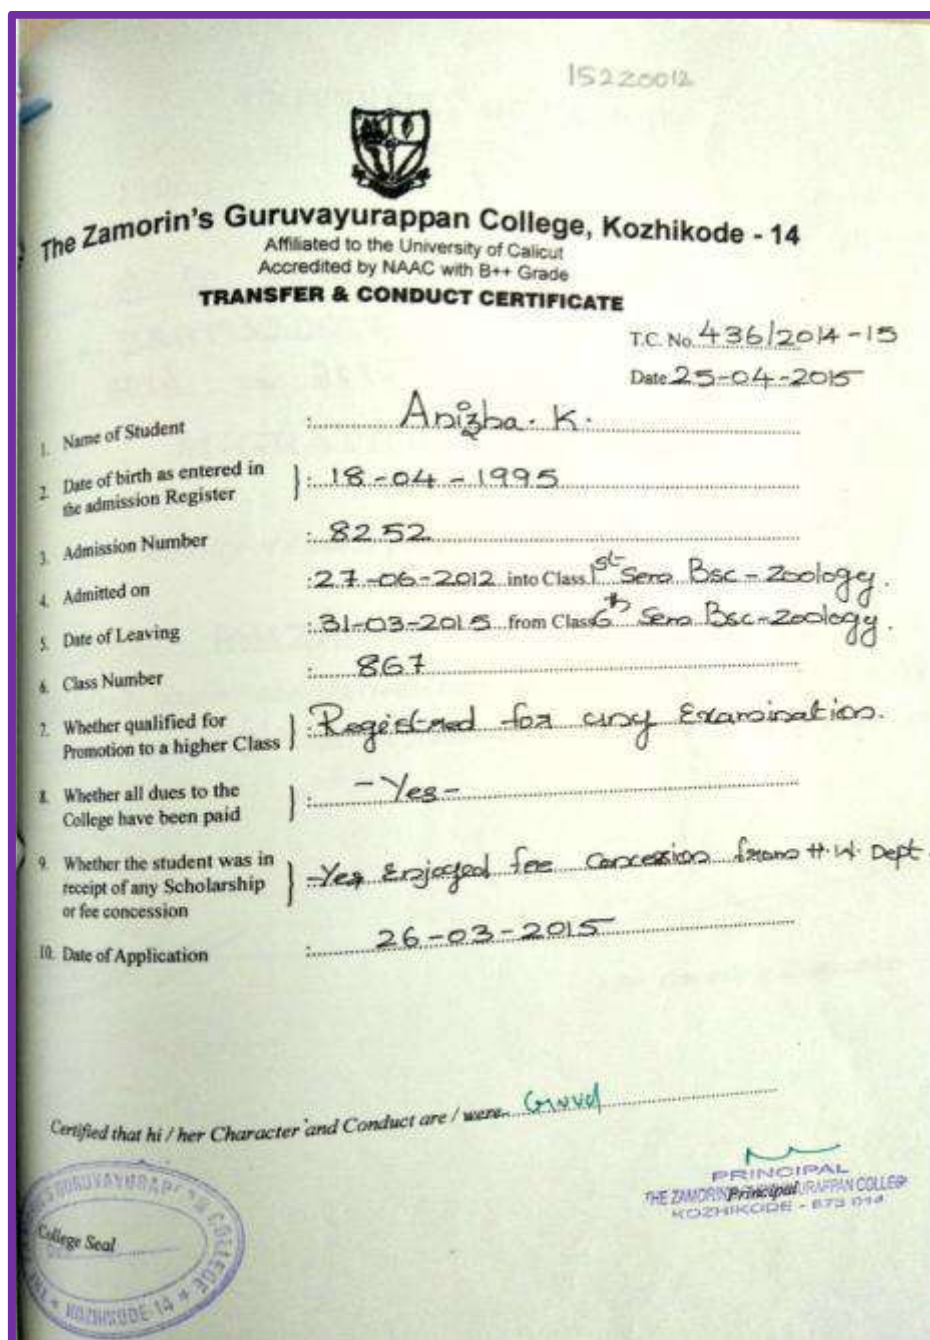 15220012
The Zamorin's Guruvayurappan College, Kozhikode - 14
Affiliated to the University of Calicut
Accredited by NAAC with B++ Grade
TRANSFER & CONDUCT CERTIFICATE
T.C. No. 436/2014-15
Date 25-04-2015
1. Name of Student : K.
2. Date of birth as entered in the admission Register : 18-04-1995
3. Admission Number : 8252
4. Admitted on : 27-06-2012 into Class 1st Sem Bsc-Zoology.
5. Date of Leaving : 31-03-2015 from Class 6th Sem Bsc-Zoology.
6. Class Number : 867
7. Whether qualified for
Promotion to a higher Class : Registred for Examination.
8. Whether all dues to the
College have been paid : -Yes-
9. Whether the student was in
receipt of any Scholarship
or fee concession : -Yes Enjoyed fee concession from H.W. Dept.
10. Date of Application : 26-03-2015
Certified that hi / her Character and Conduct are / were Good
PRINCIPAL
THE ZAMORIN'S GURUVAYURAPPAN COLLEGE
Principal
KOZHIKODE - 673 014
GURUVAYURAPPAN COLLEGE
College Seal
KOZHIKODE-14